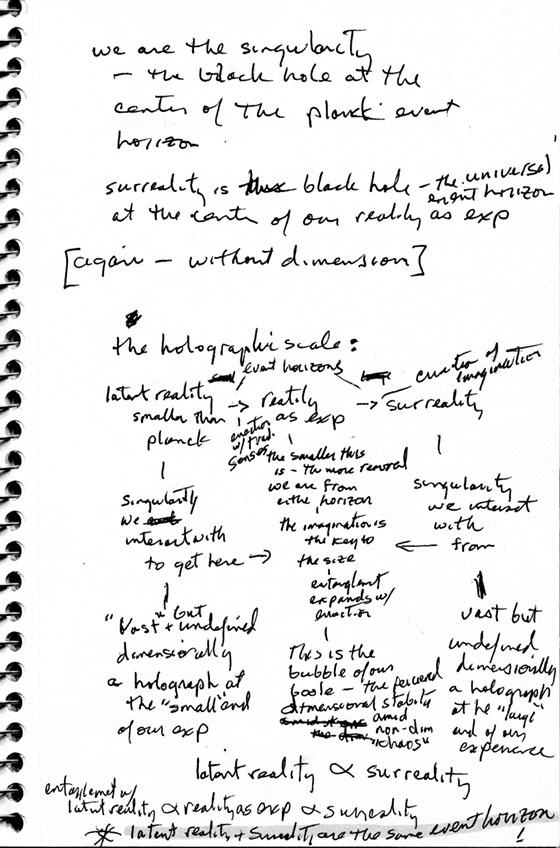 we are the singularity
– the black hole at the
center of the planck event
horizon
surreality is black hole – the universal
event horizon
at the center of our reality as exp
[again – without dimension]
the holographic scale:
event horizons
enaction of
imagination
latent reality → reality → surreality
smaller than as exp
planck
enaction
w/ trad.
senses
the smaller this
is – the more removed
we are from
either horizon
the imagination is
the key to
the size
entanglement
expands w/
enaction
This is the
bubble of our
– the perceived
dimensional stability
amid
non-dim
"chaos"
singularity
we
interact with
to get here →
"vast" but
+ undefined
dimensionally
a holograph at
the "small" end
of our exp
singularity
we interact
with
← from
vast but
undefined
dimensionally
a holograph
at the "large"
end of our
experience
latent reality ∝ surreality
entanglement w/
latent reality ∝ reality as exp ∝ surreality
* latent reality + surreality are the same event horizon
!